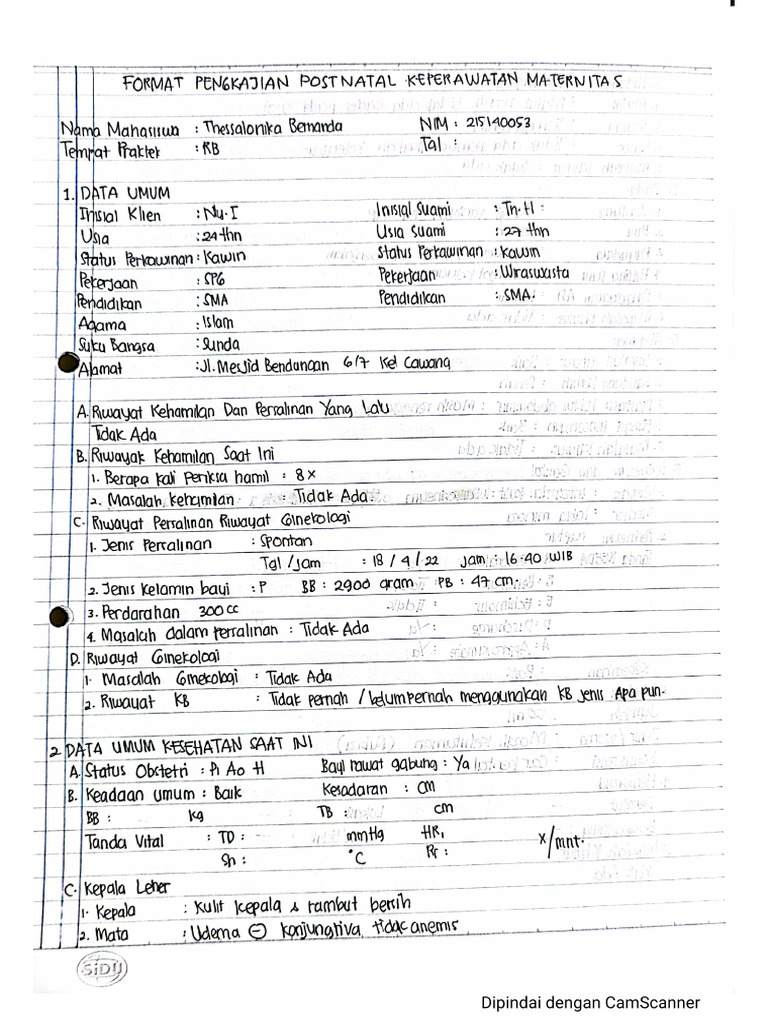 FORMAT PENGKAJIAN POSTNATAL KEPERAWATAN MATERNITAS
Nama Mahasiswa : Thessalonika Bernanda NIM : 215140053
Tempat Praktek : RB Tgl :
1. DATA UMUM
Inisial Klien : Ny. I Inisial Suami : Tn. H :
Usia : 24 thn Usia Suami : 27 thn
Status Perkawinan : Kawin Status Perkawinan : Kawin
Pekerjaan : SPG Pekerjaan : Wiraswasta
Pendidikan : SMA Pendidikan : SMA.
Agama : Islam
Suku Bangsa : Sunda
Alamat : Jl. Mesjid Bendungan 6/7 Kel Cawang
A. Riwayat Kehamilan Dan Persalinan Yang Lalu
Tidak Ada
B. Riwayat Kehamilan Saat Ini
1. Berapa kali periksa hamil : 8 x
2. Masalah kehamilan : Tidak Ada.
C. Riwayat Persalinan Riwayat Ginekologi
1. Jenis Persalinan : Spontan
Tgl / Jam : 18 / 4 / 22 Jam : 16.40 WIB
2. Jenis Kelamin bayi : P BB : 2900 gram PB : 47 cm.
3. Perdarahan 300 cc
4. Masalah dalam persalinan : Tidak Ada
D. Riwayat Ginekologi
1. Masalah Ginekologi : Tidak Ada
2. Riwayat KB : Tidak pernah / belum pernah menggunakan KB jenis Apa pun.
2. DATA UMUM KESEHATAN SAAT INI
A. Status Obstetri : P1 A0 H Bayi rawat gabung : Ya
B. Keadaan Umum : Baik Kesadaran : CM
BB : Kg TB : cm
Tanda Vital : TD : mmHg HR, x/mnt.
Sh : °C Rr :
C. Kepala Leher
1. Kepala : Kulit kepala & rambut bersih
2. Mata : Udema ⊖ konjungtiva, tidak anemis
SiDU
Dipindai dengan CamScanner